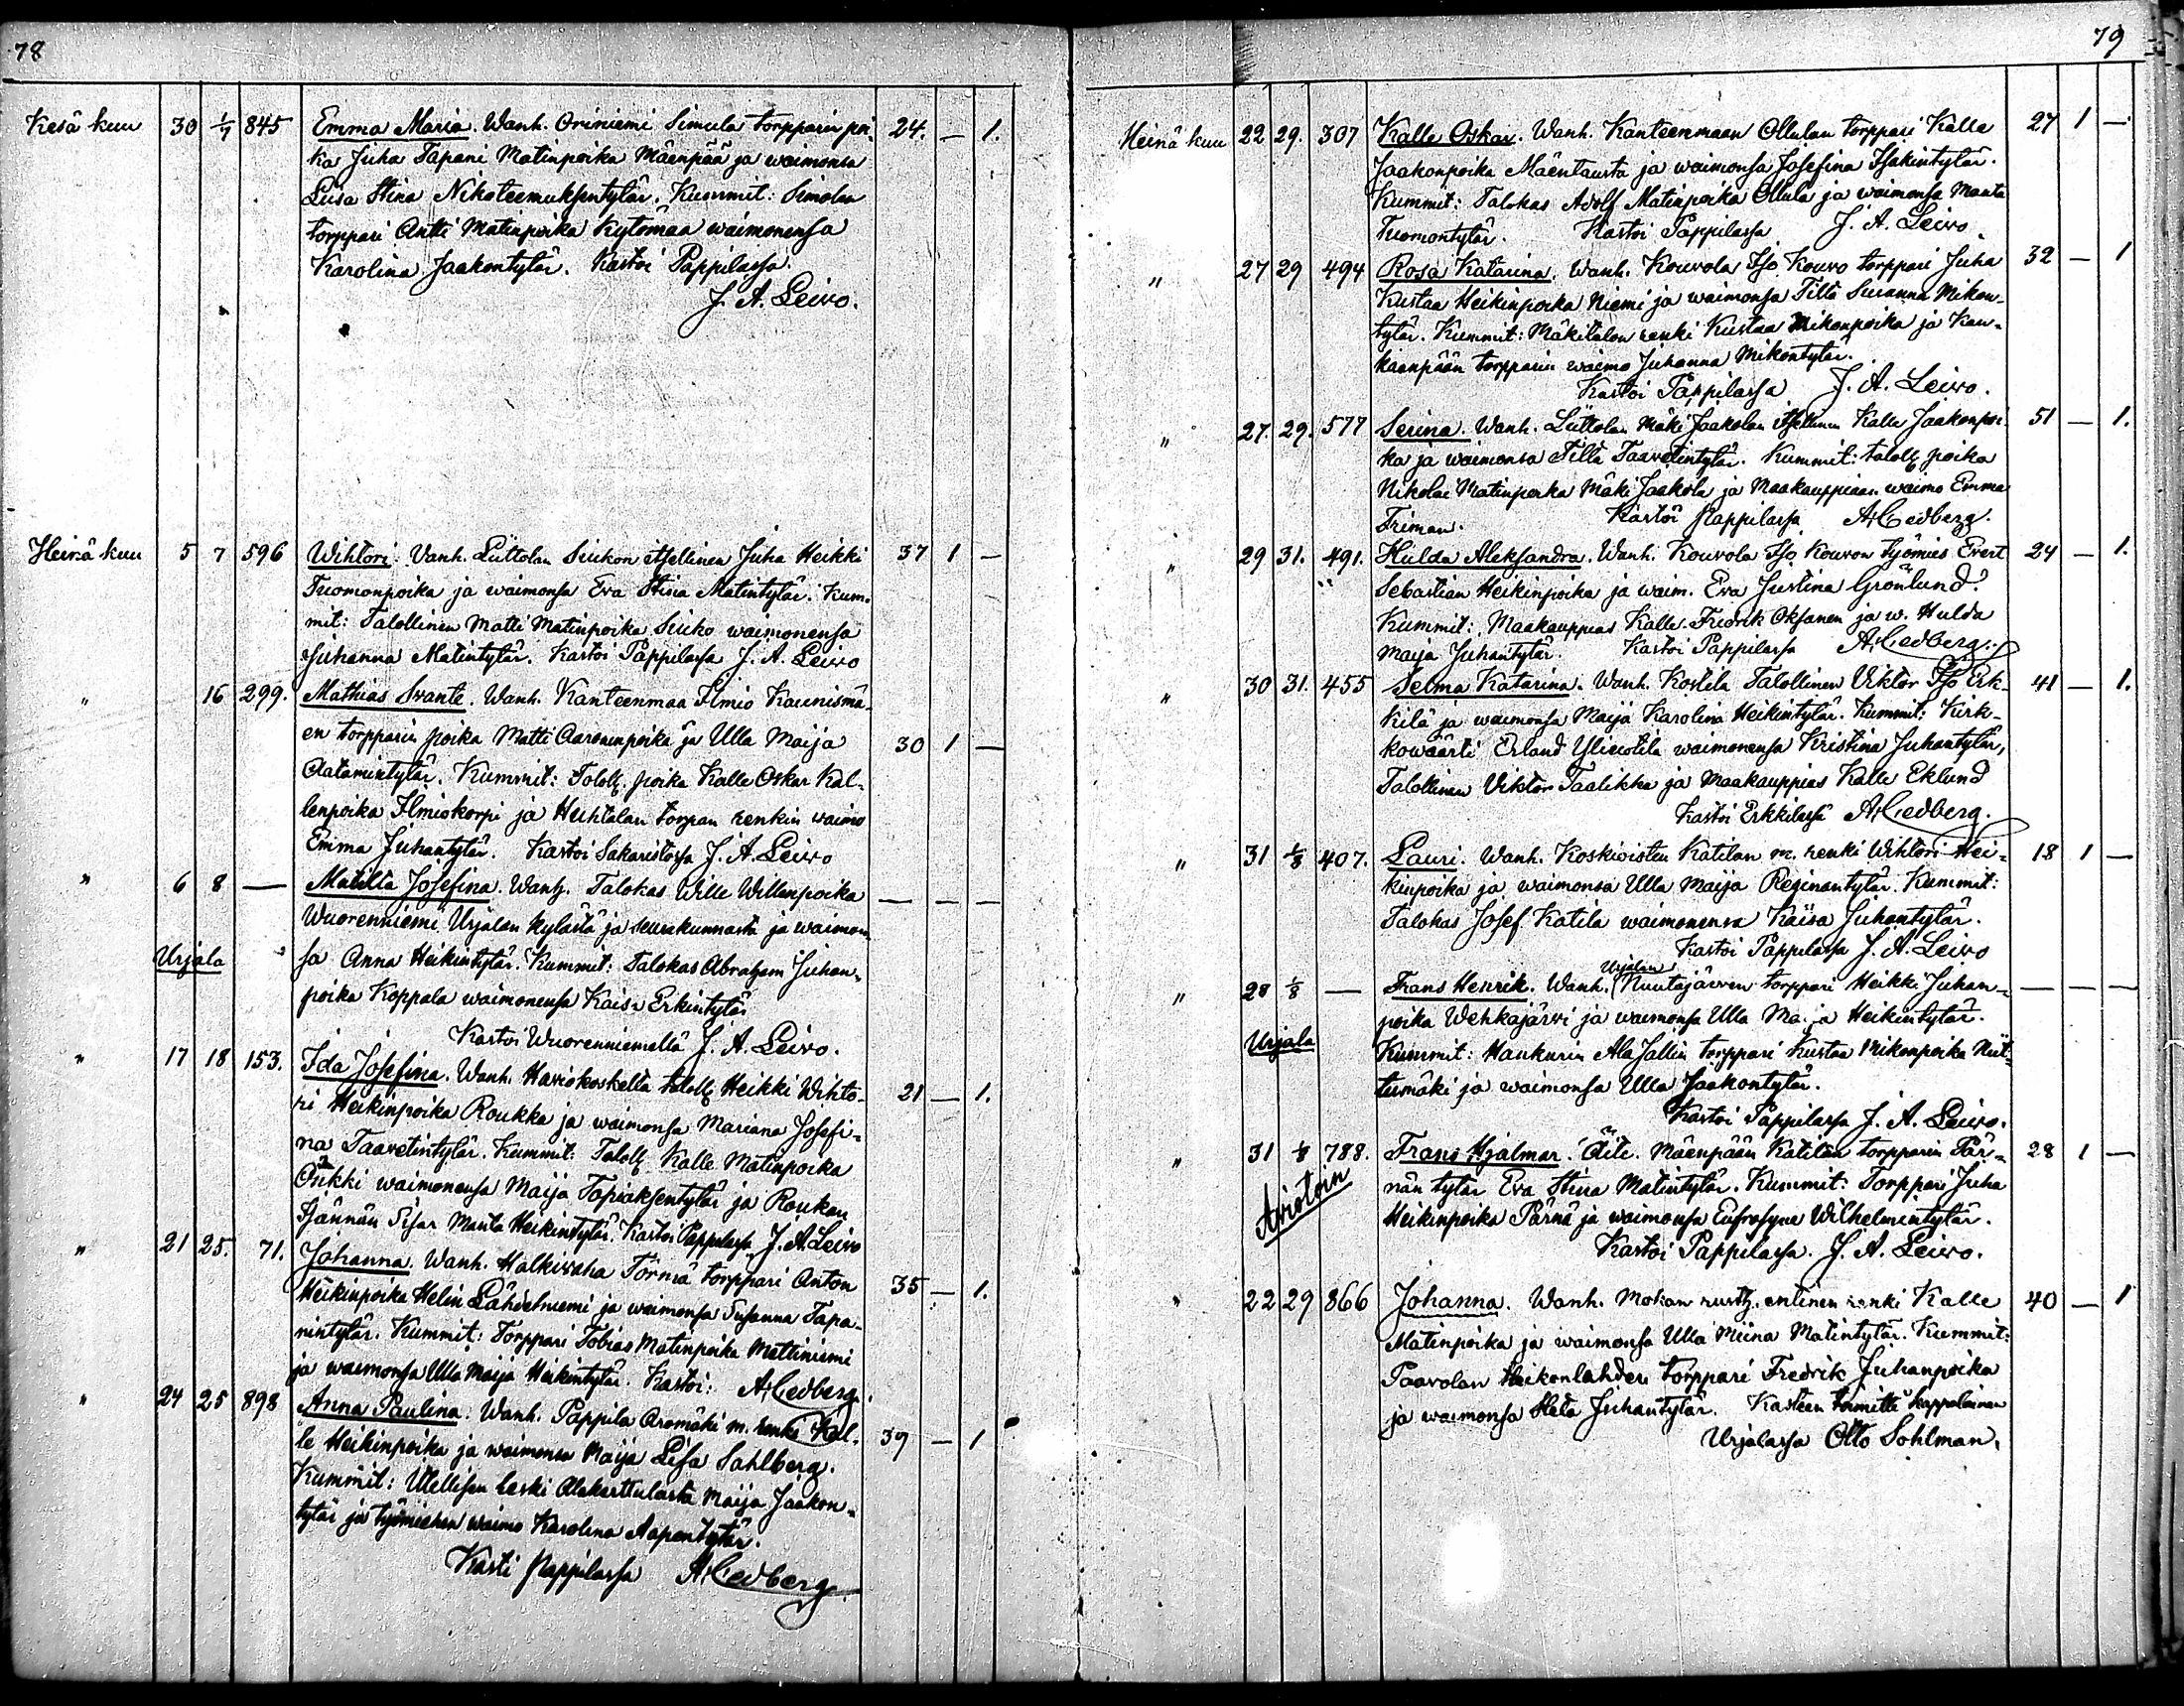 78
Kesä kuu 30 1/7 845 Emma Maria. Wanh. Oriniemi Simula torpparin poi- 24. — 1.
ka Juha Tapani Matinpoika Mäenpää ja waimonsa
Luisa Stina Nikoteemuksentytär. Kummit: Simolan
torppari Antti Matinpoika Kytömaa waimonensa
Karolina Jaakontytär. Kastoi Pappilassa.
J. A. Leivo.
Heinä kuu 5 7 596 Wihtori. Vanh. Liittolan Siukon itsellinen Juha Heikki 37 1 —
Tuomonpoika ja waimonsa Eva Stina Matintytär. Kum-
mit: Talollinen Matti Matinpoika Siuko waimonensa
Juhanna Matintytär. Kastoi Pappilassa J. A. Leivo
" 16 299. Mathias Swante. Wanh. Kanteenmaa Ilmio Kaunismä-
en torpparin poika Matti Aaroninpoika ja Ulla Maija 30 1 —
Aatamintytär. Kummit: Taloll. poika Kalle Oskar Kal-
lenpoika Ilmiokorpi ja Huhtalan torpan renkin waimo
Emma Juhantytär. Kastoi Sakaristossa J. A. Leivo
" 6 8 — Matilta Josefina. Wanh. Talokas Wille Willenpoika — — —
Wuorenniemi Urjalan kylästä ja seurakunnasta ja waimon-
Urjala sa Anna Heikintytär. Kummit: Talokas Abraham Juhan-
poika Koppala waimonensa Kaisa Erkintytär
Kastoi Wuorenniemellä J. A. Leivo.
" 17 18 153. Ida Josefina. Wanh. Haviokoskelta taloll Heikki Wihto-
ri Heikinpoika Roukka ja waimonsa Mariana Josefi- 21 — 1.
na Taavetintytär. Kummit: Taloll. Kalle Matinpoika
Onkki waimonensa Maija Topiaksentytär ja Roukan
Isännän Sisar Manta Heikintytär. Kastoi Pappilassa J. A. Leivo
" 21 25. 71. Johanna. Wanh. Halkivaha Törmä torppari Anton
Heikinpoika Helin Lähdelniemi ja waimonsa Susanna Tapa- 35 — 1.
nintytär. Kummit: Torppari Tobias Matinpoika Mattiniemi
ja waimonsa Ulla Maija Heikintytär. Kastoi: A. Cedberg.
" 24 25 898 Anna Paulina. Wanh. Pappila Aromäki m. renki Kal-
le Heikinpoika ja waimonsa Maija Lisa Sahlberg. 39 — 1
Kummit: Itsellisen leski Alakerttulasta Maija Jaakon-
tytär ja työmiehen waimo Karolina Aapontytär.
Kasti Pappilassa A. Cedberg.
79
Heinä kuu 22 29. 307 Kalle Oskar. Wanh. Kanteenmaan Ollulan torppari Kalle 27 1 —
Jaakonpoika Mäentausta ja waimonsa Josefina Isakintytär.
Kummit: Talokas Adolf Matinpoika Ollula ja waimonsa Manta
Tuomontytär. Kastoi Pappilassa J. A. Leivo.
" 27 29 494 Rosa Katarina. Wanh. Kouvola Iso Kouvo torppari Juha 32 — 1
Kustaa Heikinpoika Niemi ja waimonsa Tilta Susanna Mikon-
tytär. Kummit: Mäkitalon renki Kustaa Mikonpoika ja Kan-
kaanpään torpparin waimo Juhanna Mikontytär.
Kastoi Pappilassa J. A. Leivo.
" 27. 29. 577 Serina. Wanh. Liittolan Mäki Jaakolan itsellinen Kalle Jaakonpoi- 51 — 1.
ka ja waimonsa Tilta Taavetintytär. Kummit: taloll poika
Nikolai Matinpoika Mäki Jaakola ja Maakauppiaan waimo Emma
Friman. Kastoi Pappilassa A. Cedberg.
" 29 31. 491. Hulda Aleksandra. Wanh. Kouvola Iso Kouvon Työmies Evert 24 — 1.
Sebastian Heikinpoika ja waim. Eva Justina Grönlund.
Kummit: Maakauppias Kalle Fredrik Oksanen ja w. Hulda
Maija Juhantytär. Kastoi Pappilassa A. Cedberg.
" 30 31. 455 Selma Katarina. Wanh. Kostila Talollinen Viktor Iso Erk- 41 — 1.
kilä ja waimonsa Maija Karolina Heikintytär. Kummit: Kirk-
kowäärti Erland Yliuotila waimonensa Kristina Juhantytär,
Talollinen Viktor Taalikka ja Maakauppias Kalle Eklund
Kastoi Erkkilässä A. Cedberg.
" 31 1/8 407. Lauri. Wanh. Koskioisten Katilan m. renki Wihtori Hei- 18 1 —
kinpoika ja waimonsa Ulla Maija Reginantytär. Kummit:
Talokas Josef Katila waimonensa Kaisa Juhantytär.
Kastoi Pappilassa J. A. Leivo
Urjalan
" 28 1/8 — Frans Henrik. Wanh. Nuutajärven torppari Heikki Juhan- — — —
poika Wehkajärvi ja waimonsa Ulla Maija Heikintytär.
Urjala Kummit: Haukurin AlaJallin torppari Kustaa Mikonpoika Niit-
tumäki ja waimonsa Ulla Jaakontytär.
Kastoi Pappilassa J. A. Leivo.
" 31 1/8 788. Frans Hjalmar. Äiti. Mäenpään Katilan torpparin Pär- 28 1 —
Aviotoin nän tytär Eva Stina Matintytär. Kummit: Torppari Juha
Heikinpoika Pärnä ja waimonsa Eufrosyne Wilhelmintytär.
Kastoi Pappilassa. J. A. Leivo.
" 22 29 866 Johanna. Wanh. Mokan rusth. entinen renki Kalle 40 — 1
Matinpoika ja waimonsa Ulla Miina Matintytär. Kummit:
Paavolan Heikonlahden torppari Fredrik Juhanpoika
ja waimonsa Heta Juhantytär. Kasteen toimitti kappalainen
Urjalassa Otto Sohlman.